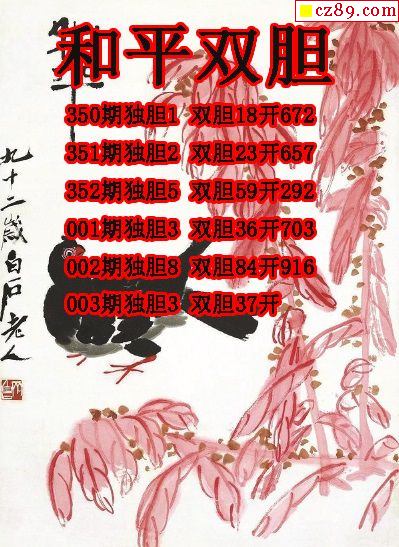 cz89.com
和平双胆
350期独胆1 双胆18开672
351期独胆2 双胆23开657
352期独胆5 双胆59开292
001期独胆3 双胆36开703
002期独胆8 双胆84开916
003期独胆3 双胆37开
九十二岁白石老人